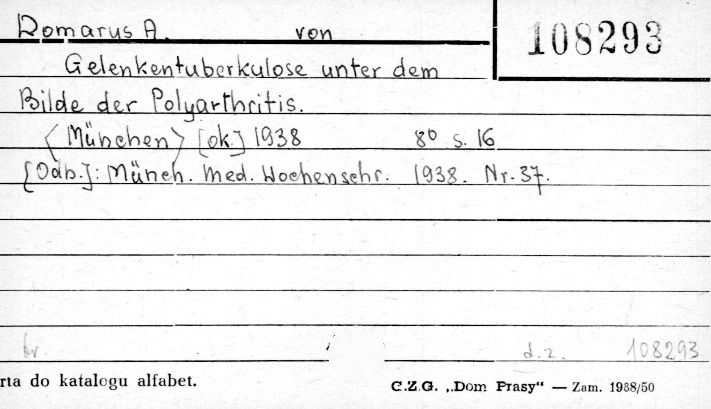 Domarus A. von 108293
Gelenkentuberkulose unter dem
Bilde der Polyarthritis.
<München> [ok.] 1938 8° s. 16
[Odb.]: Münch. med. Wochenschr. 1938. Nr. 37.
kr. d.z. 108293
rta do katalogu alfabet. C.Z.G. „Dom Prasy“ — Zam. 1988/50